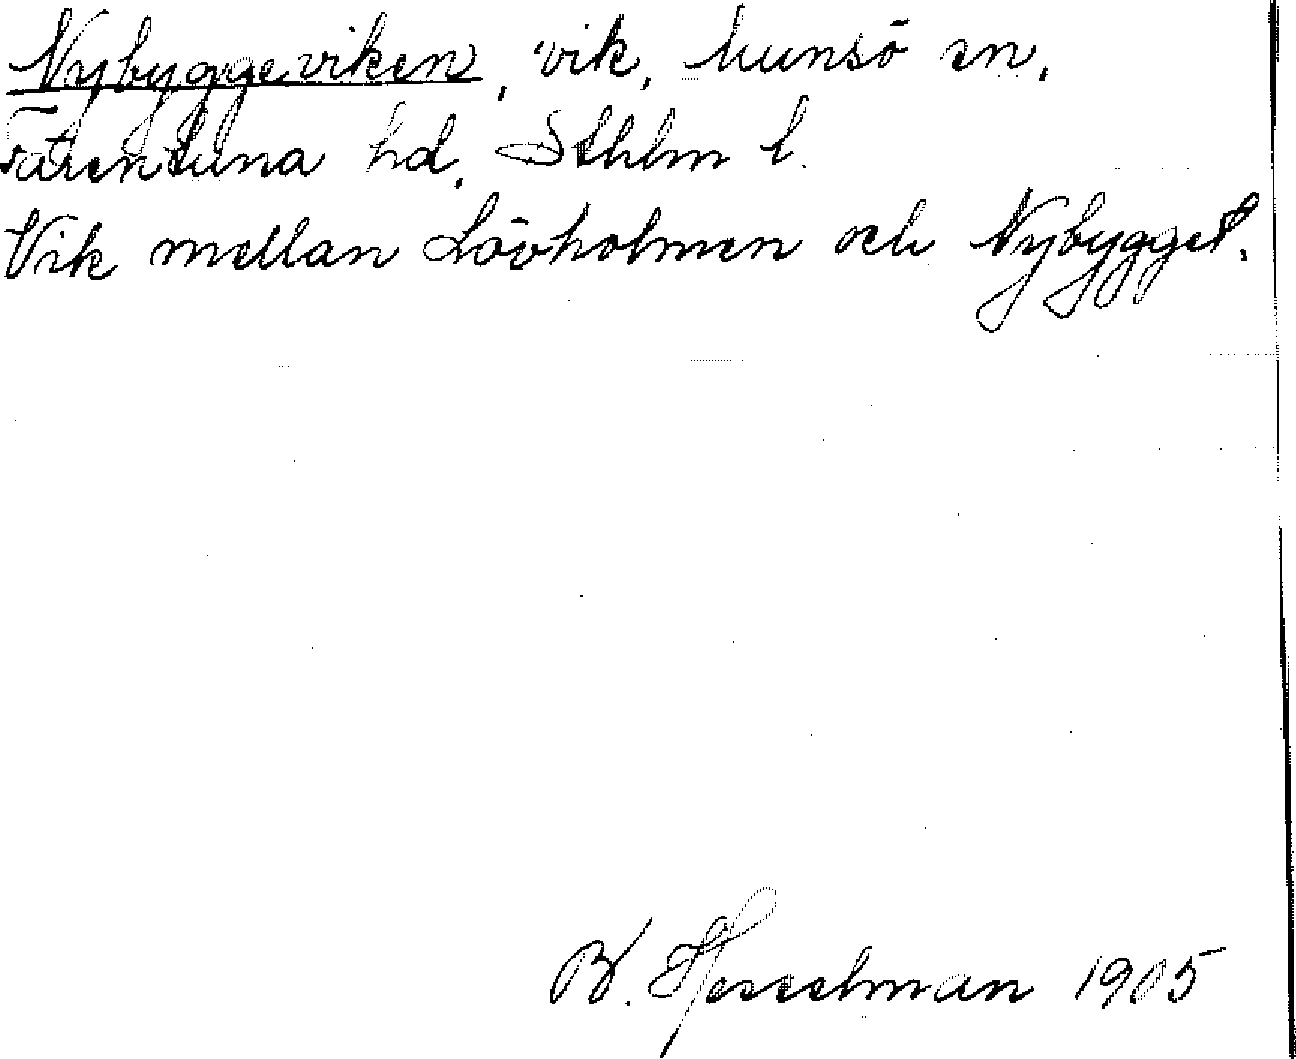 Nybyggeviken, vik, Munsö sn,
Färentuna hd, Sthlm l.
Vik mellan Lövholmen och Nybygget.
B. Hesselman 1905